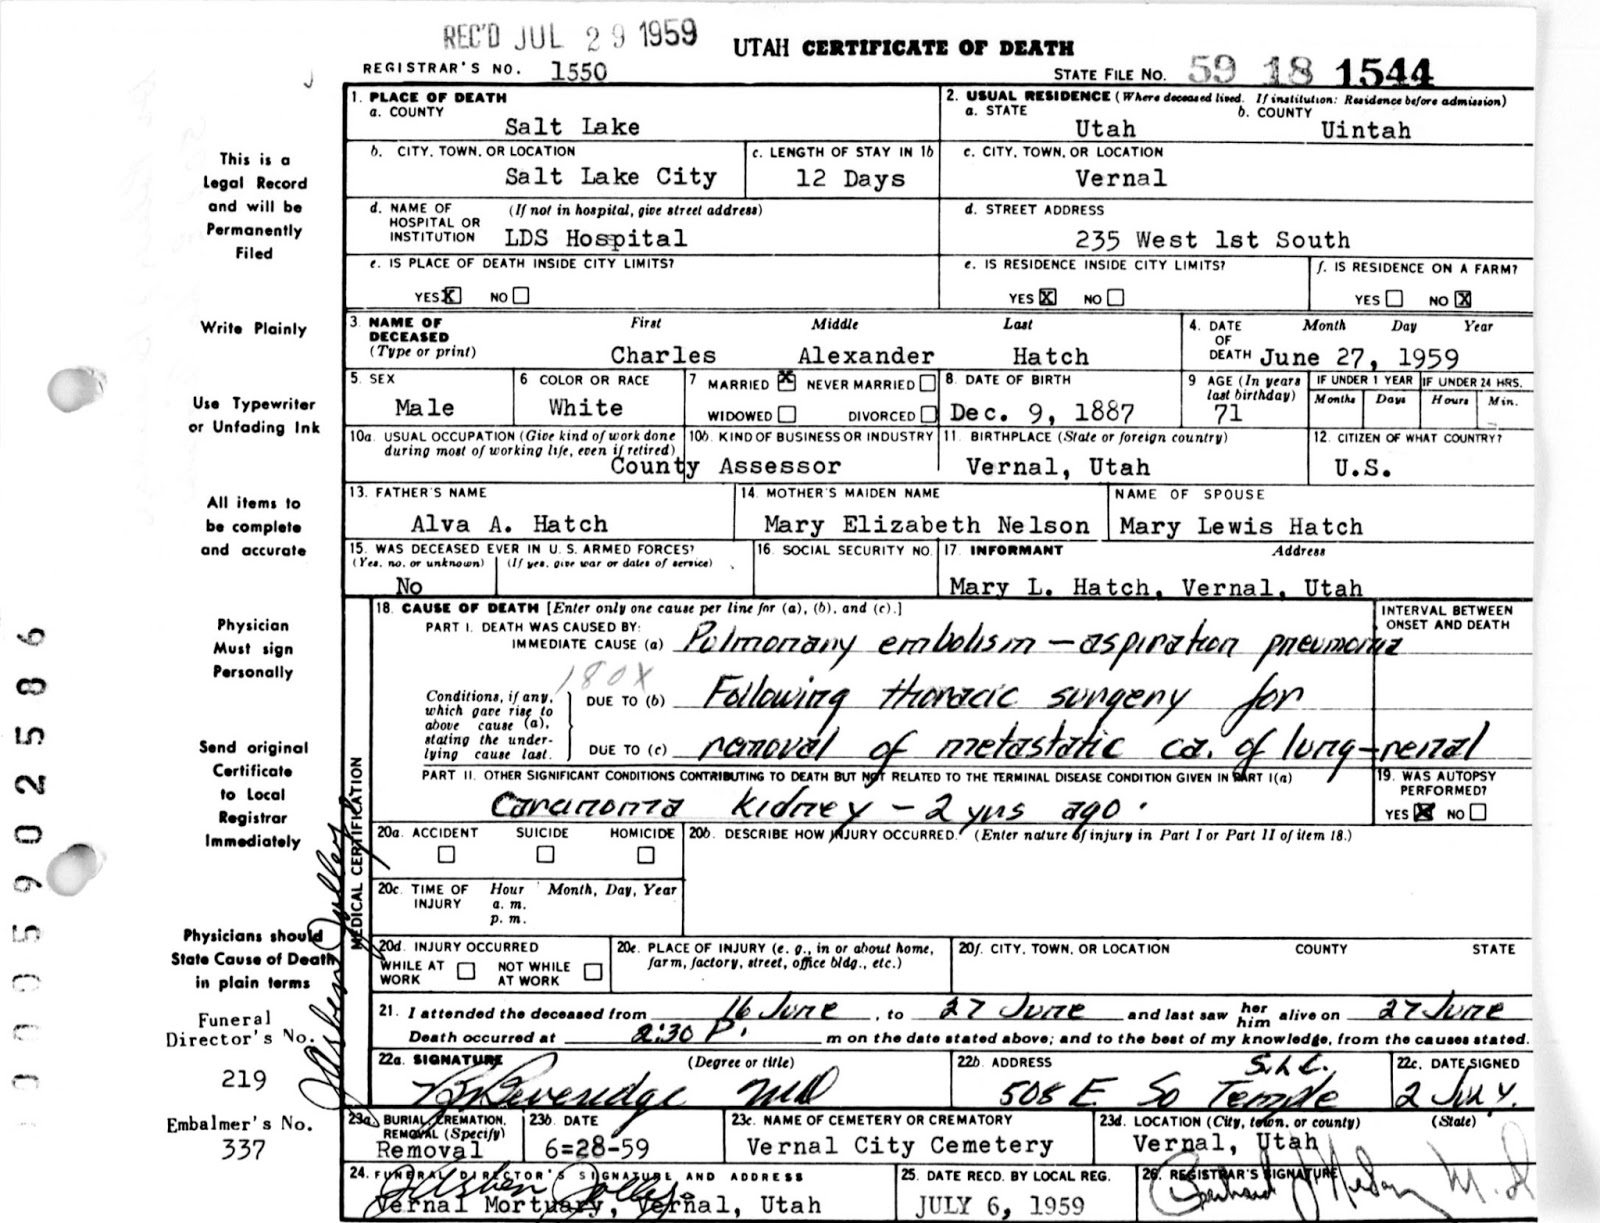 REC'D JUL 29 1959
UTAH CERTIFICATE OF DEATH
REGISTRAR'S NO. 1550
STATE FILE NO. 59 18 1544
This is a
Legal Record
and will be
Permanently
Filed
Write Plainly
Use Typewriter
or Unfading Ink
All items to
be complete
and accurate
Physician
Must sign
Personally
Send original
Certificate
to Local
Registrar
Immediately
Physicians should
State Cause of Death
in plain terms
Funeral
Director's No.
219
Embalmer's No.
337
1. PLACE OF DEATH
a. COUNTY
Salt Lake
2. USUAL RESIDENCE (Where deceased lived. If institution: Residence before admission)
a. STATE
Utah
b. COUNTY
Uintah
b. CITY, TOWN, OR LOCATION
Salt Lake City
c. LENGTH OF STAY IN 1b
12 Days
c. CITY, TOWN, OR LOCATION
Vernal
d. NAME OF HOSPITAL OR INSTITUTION
(If not in hospital, give street address)
LDS Hospital
d. STREET ADDRESS
235 West 1st South
e. IS PLACE OF DEATH INSIDE CITY LIMITS?
YES X NO
e. IS RESIDENCE INSIDE CITY LIMITS?
YES X NO
f. IS RESIDENCE ON A FARM?
YES NO X
3. NAME OF DECEASED
(Type or print)
First Middle Last
Charles Alexander Hatch
4. DATE OF DEATH
Month Day Year
June 27, 1959
5. SEX
Male
6 COLOR OR RACE
White
7 MARRIED X NEVER MARRIED
WIDOWED DIVORCED
8. DATE OF BIRTH
Dec. 9, 1887
9 AGE (In years last birthday)
71
IF UNDER 1 YEAR
Months Days
IF UNDER 24 HRS.
Hours Min.
10a. USUAL OCCUPATION (Give kind of work done during most of working life, even if retired)
10b. KIND OF BUSINESS OR INDUSTRY
County Assessor
11. BIRTHPLACE (State or foreign country)
Vernal, Utah
12. CITIZEN OF WHAT COUNTRY?
U.S.
13. FATHER'S NAME
Alva A. Hatch
14. MOTHER'S MAIDEN NAME
Mary Elizabeth Nelson
NAME OF SPOUSE
Mary Lewis Hatch
15. WAS DECEASED EVER IN U.S. ARMED FORCES?
(Yes, no, or unknown) (If yes, give war or dates of service)
No
16. SOCIAL SECURITY NO.
17. INFORMANT Address
Mary L. Hatch, Vernal, Utah
MEDICAL CERTIFICATION
18. CAUSE OF DEATH [Enter only one cause per line for (a), (b), and (c).]
INTERVAL BETWEEN ONSET AND DEATH
PART I. DEATH WAS CAUSED BY:
IMMEDIATE CAUSE (a) Pulmonary embolism - aspiration pneumonia
180X
Conditions, if any, which gave rise to above cause (a), stating the underlying cause last.
DUE TO (b) Following thoracic surgery for
DUE TO (c) removal of metastatic ca. of lung - renal
PART II. OTHER SIGNIFICANT CONDITIONS CONTRIBUTING TO DEATH BUT NOT RELATED TO THE TERMINAL DISEASE CONDITION GIVEN IN PART I(a)
Carcinoma kidney - 2 yrs ago.
19. WAS AUTOPSY PERFORMED?
YES X NO
20a. ACCIDENT SUICIDE HOMICIDE
20b. DESCRIBE HOW INJURY OCCURRED. (Enter nature of injury in Part I or Part II of item 18.)
20c. TIME OF INJURY
Hour Month, Day, Year
a. m.
p. m.
20d. INJURY OCCURRED
WHILE AT WORK NOT WHILE AT WORK
20e. PLACE OF INJURY (e. g., in or about home, farm, factory, street, office bldg., etc.)
20f. CITY, TOWN, OR LOCATION COUNTY STATE
21. I attended the deceased from 16 June, to 27 June and last saw her him alive on 27 June
Death occurred at 2:30 P. m on the date stated above; and to the best of my knowledge, from the causes stated.
22a. SIGNATURE (Degree or title)
Beveridge MD
22b. ADDRESS
S.L.C.
508 E. So Temple
22c. DATE SIGNED
2 July.
23a. BURIAL, CREMATION, REMOVAL (Specify)
Removal
23b. DATE
6-28-59
23c. NAME OF CEMETERY OR CREMATORY
Vernal City Cemetery
23d. LOCATION (City, town, or county) (State)
Vernal, Utah
24. FUNERAL DIRECTOR'S SIGNATURE AND ADDRESS
Vernal Mortuary, Vernal, Utah
25. DATE RECD. BY LOCAL REG.
JULY 6, 1959
26. REGISTRAR'S SIGNATURE
005902586